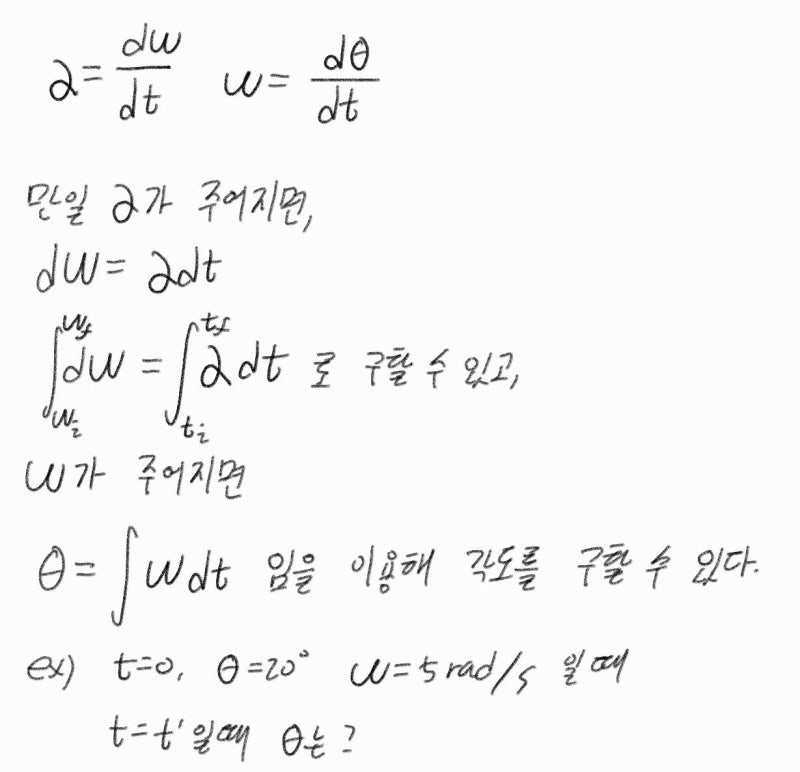 α = dω/dt ω = dθ/dt
만일 α가 주어지면,
dω = αdt
∫_{ω_i}^{ω_f} dω = ∫_{t_i}^{t_f} α dt 로 구할 수 있고,
ω가 주어지면
θ = ∫ω dt 임을 이용해 각도를 구할 수 있다.
ex) t=0, θ=20° ω=5 rad/s 일 때
t=t' 일때 θ는?